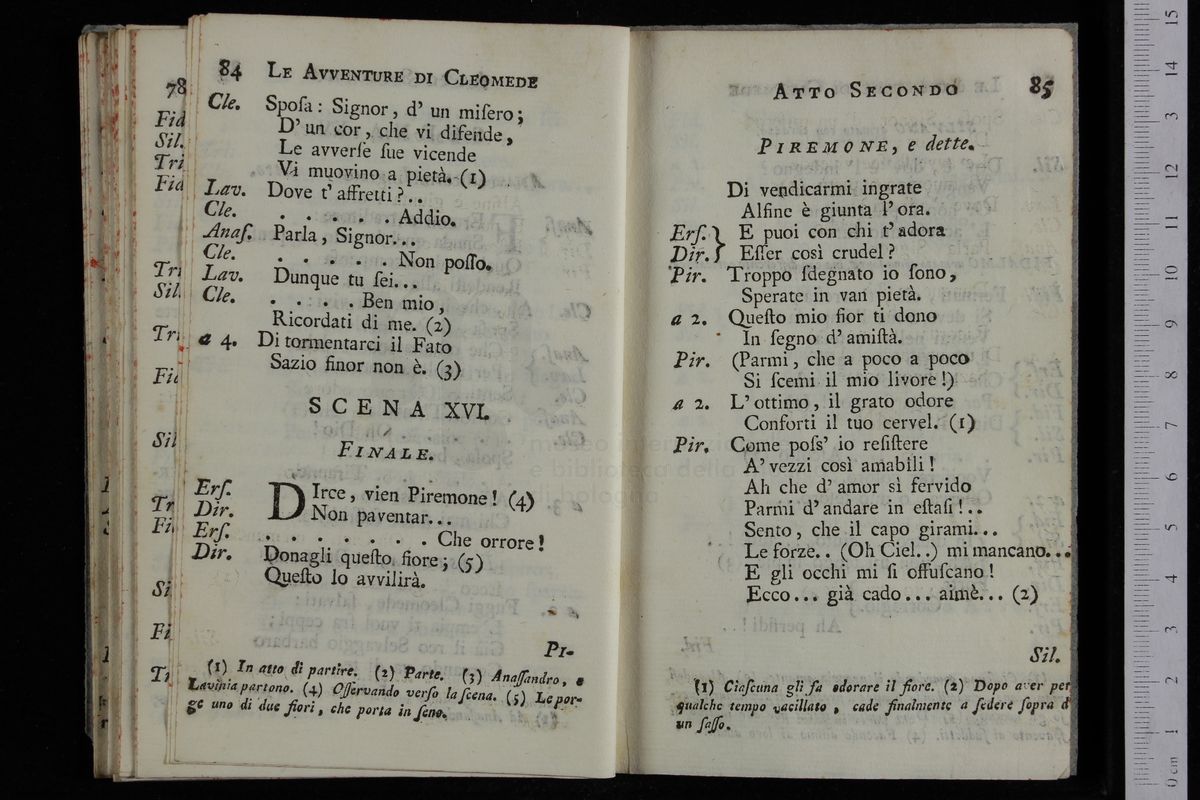 84 LE AVVENTURE DI CLEOMEDE
Cle. Spoſa: Signor, d' un miſero;
D' un cor, che vi difende,
Le avverſe ſue vicende
Vi muovino a pietà. (1)
Lav. Dove t' affretti?..
Cle. . . . . . Addio.
Anaſ. Parla, Signor...
Cle. . . . . . Non poſſo.
Lav. Dunque tu ſei...
Cle. . . . . Ben mio,
Ricordati di me. (2)
a 4. Di tormentarci il Fato
Sazio finor non è. (3)
SCENA XVI.
FINALE.
Erſ. DIrce, vien Piremone! (4)
Dir. Non paventar...
Erſ. . . . . . . . Che orrore!
Dir. Donagli queſto fiore; (5)
Queſto lo avvilirà.
PI-
(1) In atto di partire. (2) Parte. (3) Anaſſandro, e
Lavinia partono. (4) Oſſervando verſo la ſcena. (5) Le por-
ge uno di due fiori, che porta in ſeno.
78
Fid
Sil.
Tri
Fid
Tri
Sil.
Tri
Fid
Sil
Tr
Fi
Si
Fi
Ti
ATTO SECONDO 85
PIREMONE, e dette.
Di vendicarmi ingrate
Alfine è giunta l' ora.
Erſ. } E puoi con chi t' adora
Dir. } Eſſer così crudel?
Pir. Troppo ſdegnato io ſono,
Sperate in van pietà.
a 2. Queſto mio fior ti dono
In ſegno d' amiſtà.
Pir. (Parmi, che a poco a poco
Si ſcemi il mio livore!)
a 2. L' ottimo, il grato odore
Conforti il tuo cervel. (1)
Pir. Come poſs' io reſiſtere
A' vezzi così amabili!
Ah che d' amor sì fervido
Parmi d' andare in eſtaſi!..
Sento, che il capo girami...
Le forze.. (Oh Ciel..) mi mancano...
E gli occhi mi ſi offuſcano!
Ecco... già cado... aimè... (2)
Sil.
(1) Ciaſcuna gli fa odorare il fiore. (2) Dopo aver per
qualche tempo vacillato, cade finalmente a ſedere ſopra d'
un ſaſſo.